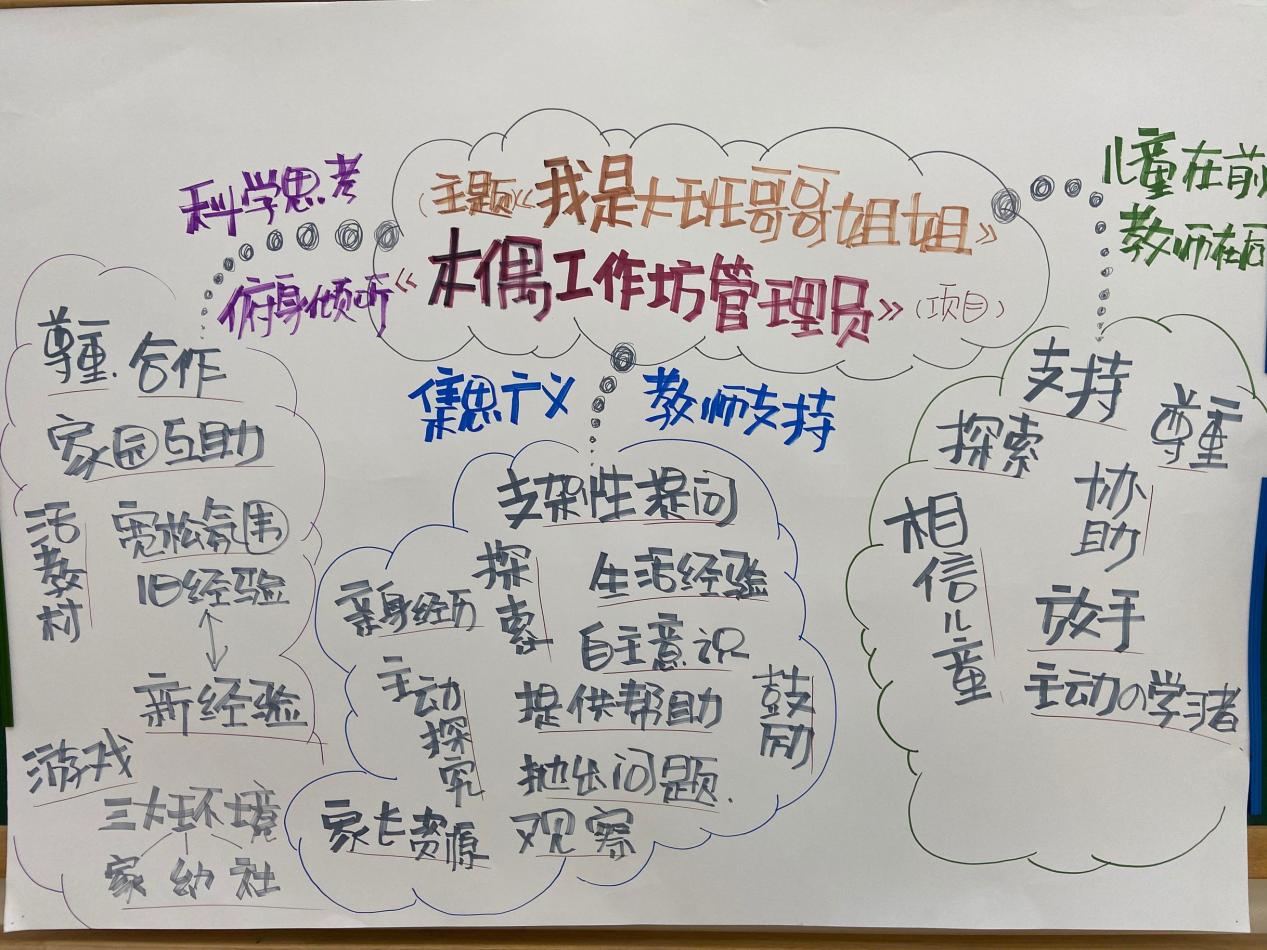 (主题)《我是大班哥哥姐姐》
《木偶工作坊管理员》(项目)
科学思考
俯身倾听
儿童在前
教师在后
集思广义 教师支持
尊重.合作
家园互助
活教材
宽松氛围
旧经验
新经验
游戏
三大班环境
家 幼 社
支架性提问
探索
生活经验
亲身经历
自主意识
主动探究
提供帮助
鼓励
抛出问题.
家长资源 观察
支持
尊重
探索
协助
相信儿童
放手
主动の学习者